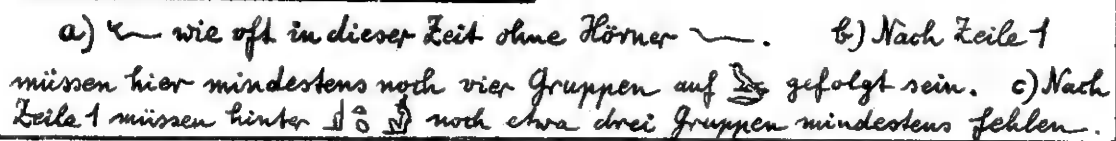 a) 𓆑 wie oft in dieser Zeit ohne Hörner 𓆓. b) Nach Zeile 1
müssen hier mindestens noch vier Gruppen auf gefolgt sein. c) Nach
Zeile 1 müssen hinter noch etwa drei Gruppen mindestens fehlen.